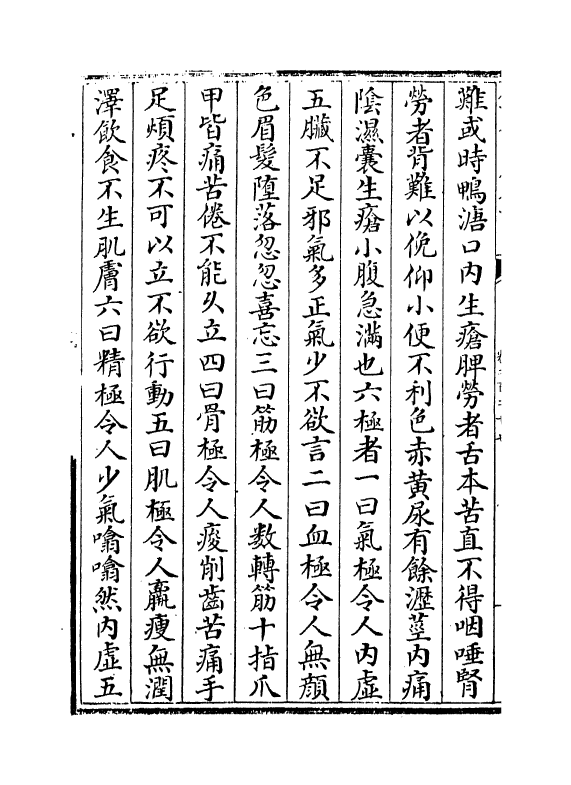 難或時鴨溏口内生瘡脾勞者舌本苦直不得咽唾腎
勞者背難以俛仰小便不利色赤黄尿有餘瀝莖内痛
陰濕囊生瘡小腹急滿也六極者一曰氣極令人内虛
五臟不足邪氣多正氣少不欲言二曰血極令人無顔
色眉髮墮落忽忽喜忘三曰筋極令人數轉筋十指爪
甲皆痛苦倦不能久立四曰骨極令人痠削齒苦痛手
足煩疼不可以立不欲行動五曰肌極令人羸瘦無潤
澤飲食不生肌膚六曰精極令人少氣噏噏然内虛五